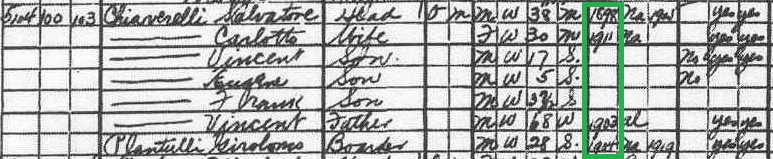 5104 100 103 Chiaverelli Salvatore Head O M M W 38 M 1898 Na yes yes
Carlotta Wife F W 30 M 1911 Na yes yes
Vincent Son. M W 17 S. No yes yes
Eugene Son M W 5 S. No
Frank Son M W S
Vincent Father M W 68 W 1903 al yes yes
Plantulli Girolomo Boarder M W 28 S. Na 1919 yes yes